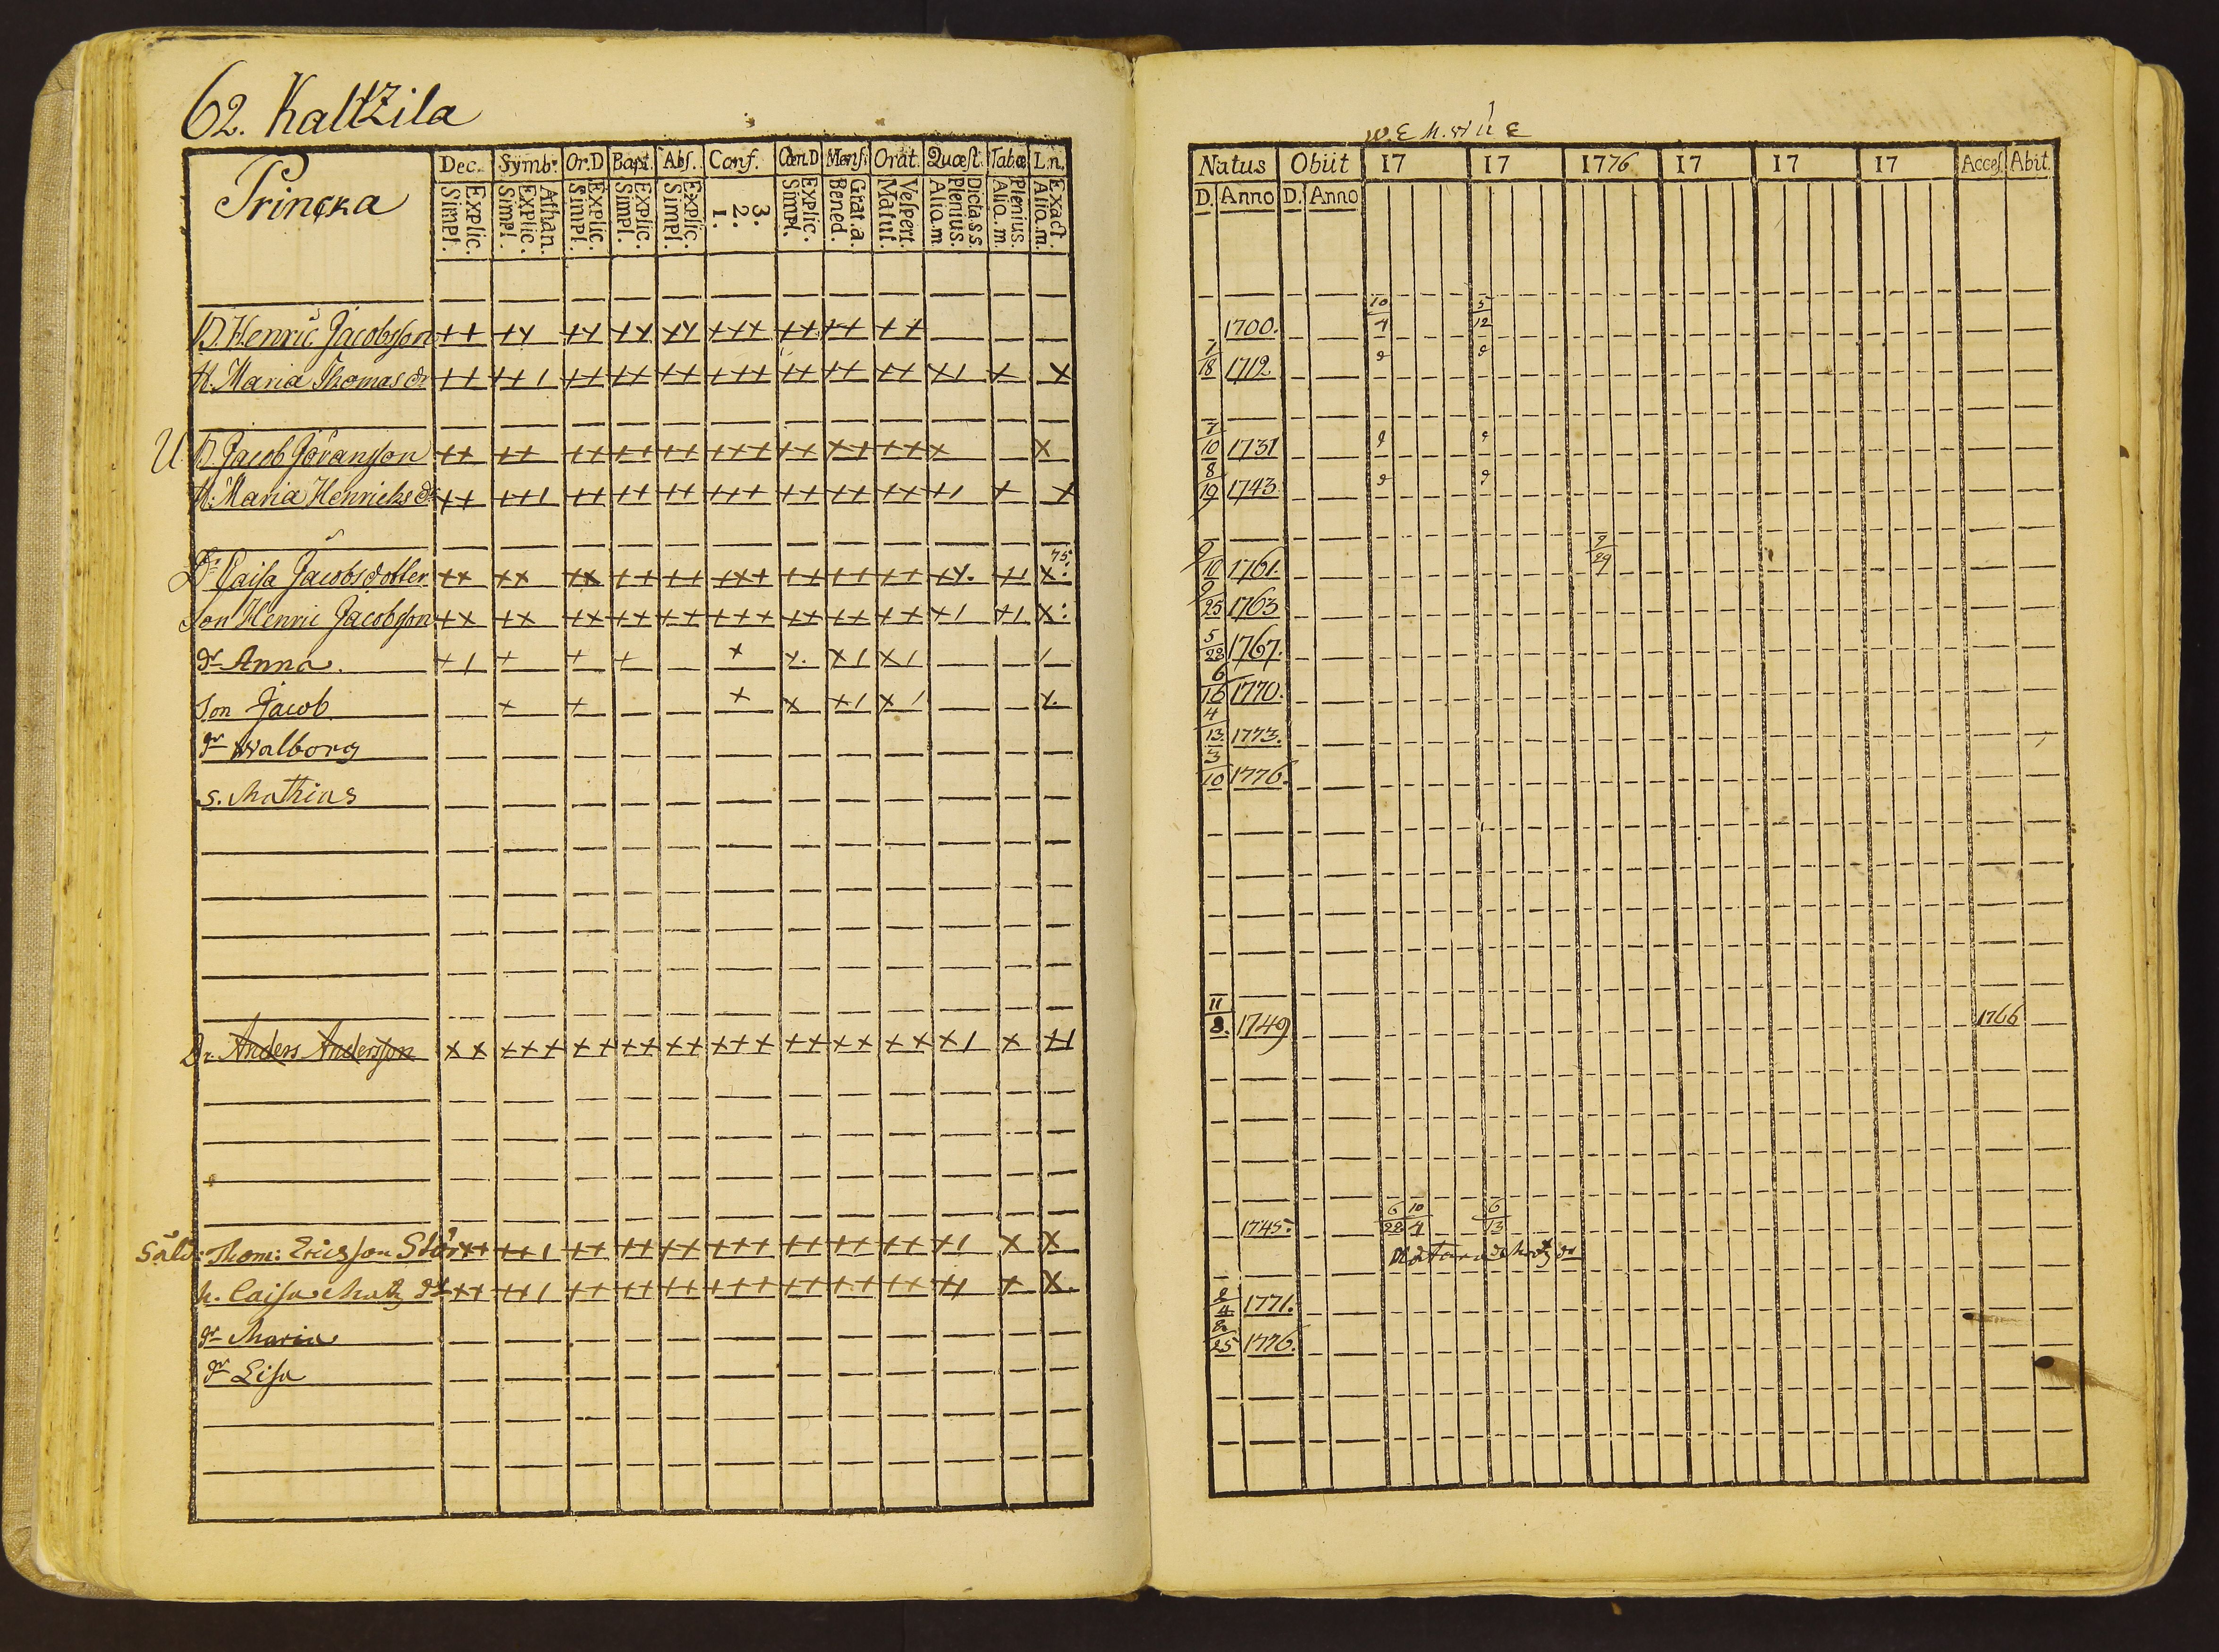 62. Kaltzila
Princka
Dec. Symb. Or.D Bapt. Abs. Conf. Cœn.D Mens. Orat. Quæst. Tabœ L.n.
Explic. Simpl. Athan. Explic. Simpl. Explic. Simpl. Explic. Simpl. Explic. Simpl. 3. 2. 1. Explic. Simpl. Grat.a. Bened. Vespert. Matut. Dicta.s.s. Plenius. Aliq.m. Plenius. Aliq.m. Exact. Aliq.m.
B. Henric Jacobsson
H. Maria Thomas dr
U B. Jacob Jöransson
H. Maria Henriks dr
Dr Caisa Jacobsdotter 75.
Son Henric Jacobsson
dr Anna.
Son Jacob
dr Walborg
s. Mathias
Dr. Anders Andersson
Sald: Thom: Ericsson Stör
h. Caisa Matz dr
dr Maria
dr Lisa
Natus Obiit 17 17 1776 17 17 17 Acces. Abit.
D. Anno D. Anno
1700. 10/4 5/12
7/18 1712
7/10 1731
8/19 1743
9/10 1761 9/29
9/25 1763
5/23 1767.
6/16 1770.
4/13 1773.
3/10 1776.
11/8. 1749 1766
1745. 6/22 10/4 6/13
2/4 1771.
2/25 1776.